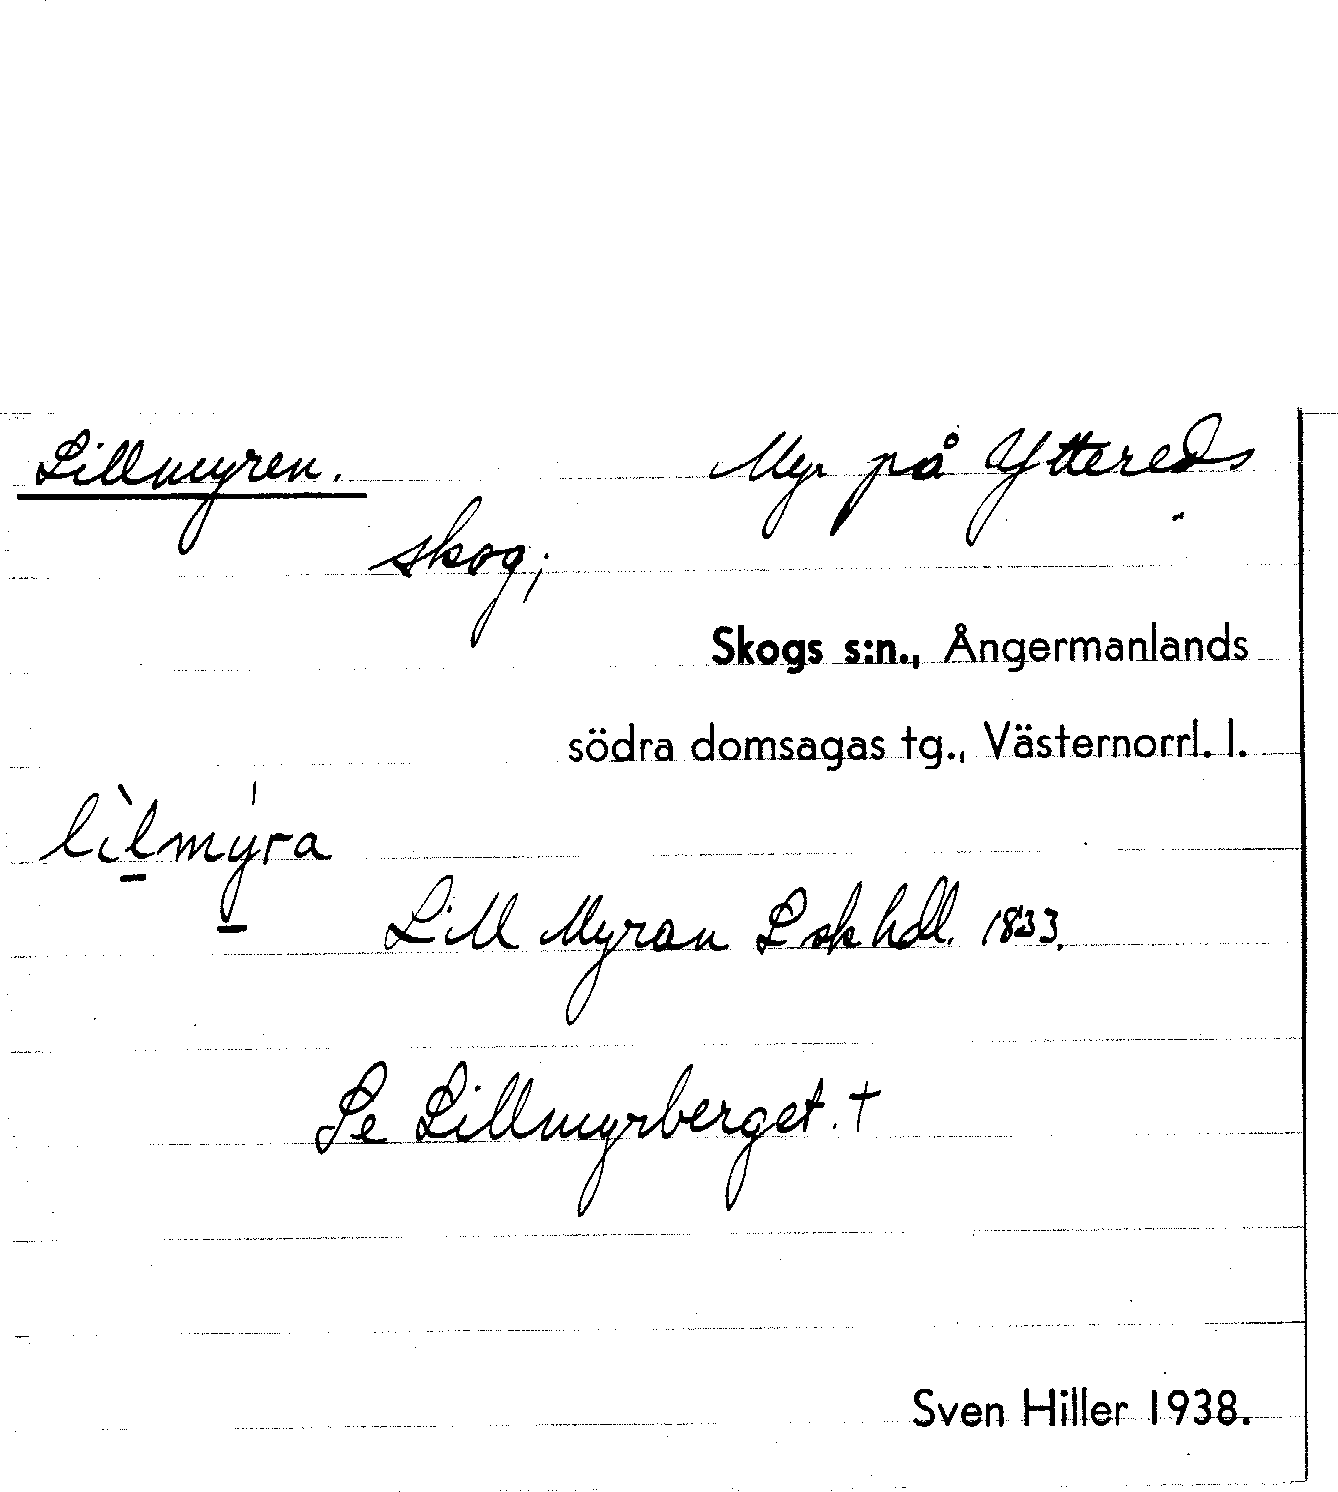 Lillmyren. Myr på Yttereds
skog;
Skogs s:n., Ångermanlands
södra domsagas tg., Västernorrl. l.
lìlmýra
Lill Myran L sk hdl. 1833.
Se Lillmyrberget. †
Sven Hiller 1938.